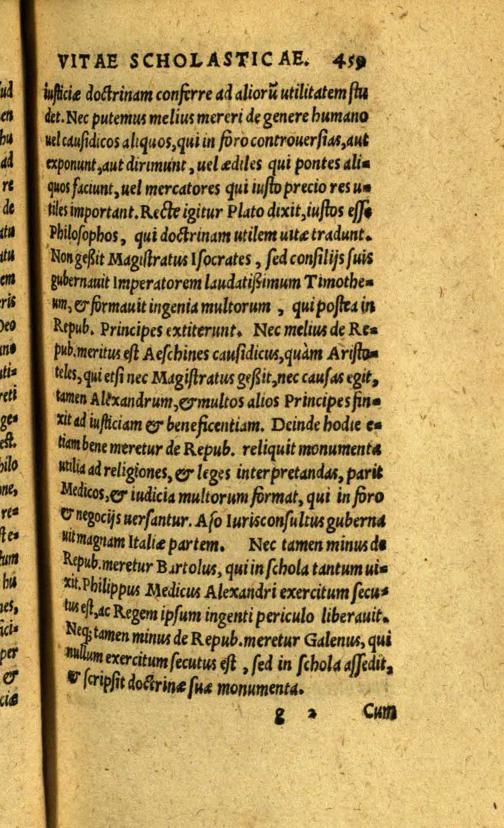 VITAE SCHOLASTICAE. 459
iusticiæ doctrinam conferre ad aliorũ utilitatem stu
det. Nec putemus melius mereri de genere humano
uel causidicos aliquos, qui in foro controuersias, aut
exponunt, aut dirimunt, uel ædiles qui pontes ali=
quos faciunt, uel mercatores qui iusto precio res u=
tiles important. Recte igitur Plato dixit, iustos esse
Philosophos, qui doctrinam utilem uitæ tradunt.
Non geßit Magistratus Isocrates, sed consilijs suis
gubernauit Imperatorem laudatißimum Timothe=
um, & formauit ingenia multorum, qui postea in
Repub. Principes extiterunt. Nec melius de Re=
pub. meritus est Aeschines causidicus, quàm Aristo=
teles, qui etsi nec Magistratus geßit, nec causas egit,
tamen Alexandrum, & multos alios Principes fin=
xit ad iusticiam & beneficentiam. Deinde hodie e=
tiam bene meretur de Repub. reliquit monumenta
utilia ad religiones, & leges interpretandas, parit
Medicos, & iudicia multorum format, qui in foro
& negocijs uersantur. Aso Iurisconsultus guberna
uit magnam Italiæ partem. Nec tamen minus de
Repub. meretur Bartolus, qui in schola tantum ui=
xit. Philippus Medicus Alexandri exercitum secu=
tus est, ac Regem ipsum ingenti periculo liberauit.
Neq; tamen minus de Repub. meretur Galenus, qui
nullum exercitum secutus est, sed in schola assedit,
& scripsit doctrinæ suæ monumenta.
g 2 Cum